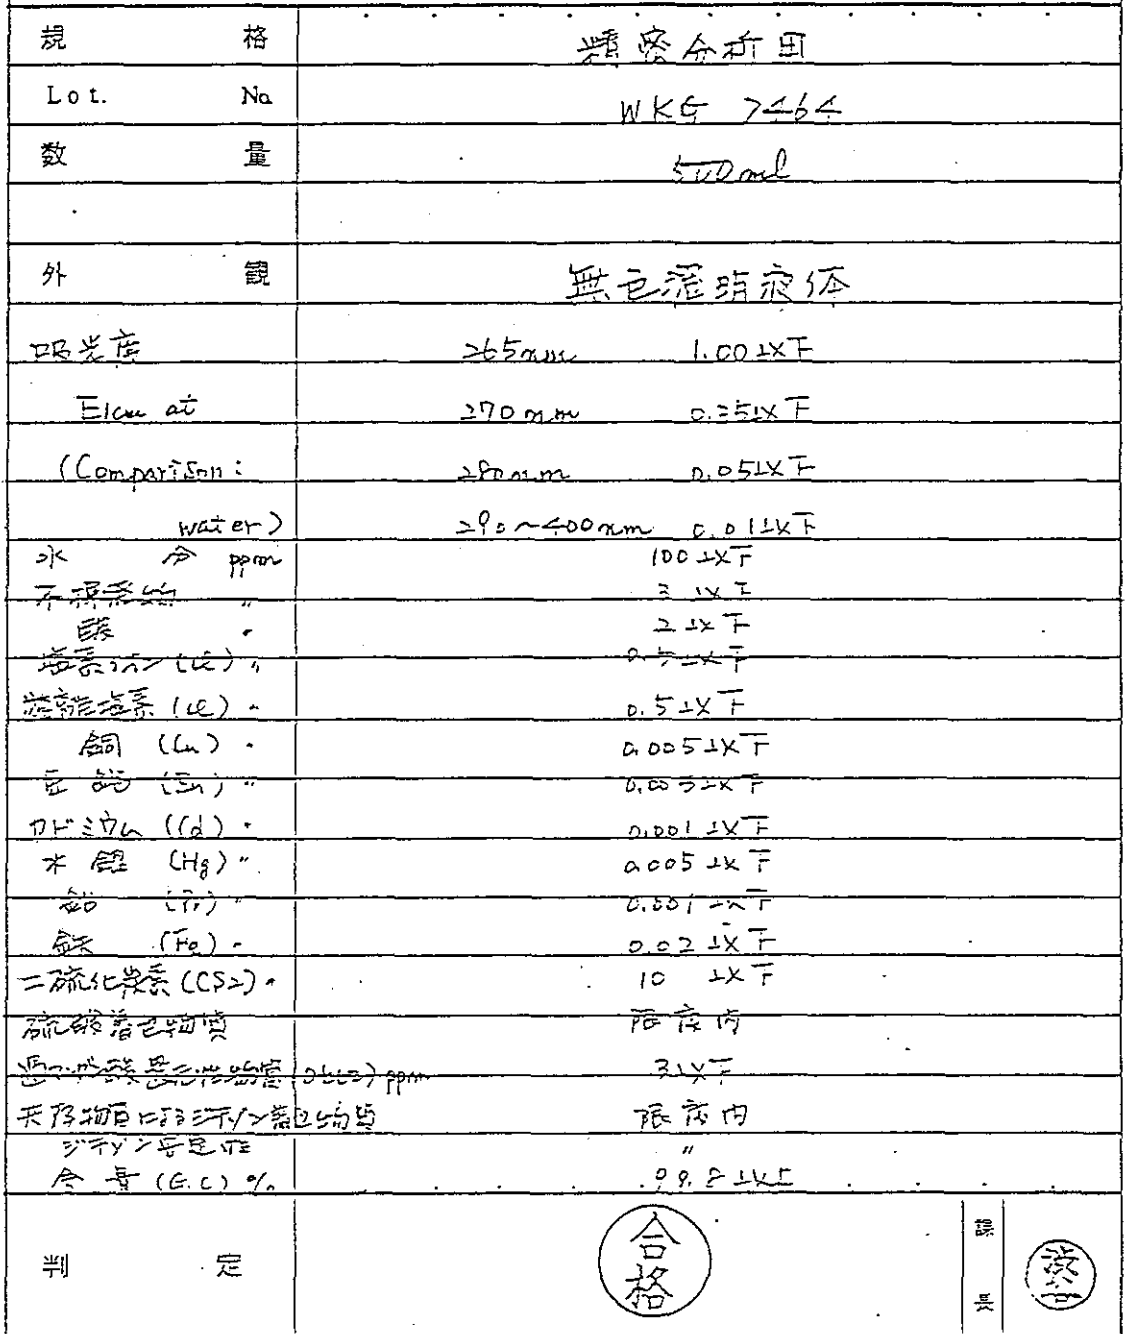 規格 精密分析用
Lot. No WKG 7464
数量 500ml
外観 無色透明液体
吸光度 265nm 1.00以下
E1cm at 270nm 0.25以下
(Comparison: 280nm 0.05以下
water) 290~400nm 0.01以下
水分 ppm 100以下
不揮発物 〃 3以下
酸 〃 2以下
塩素イオン(Cl) 〃 0.5以下
遊離塩素(Cl) 〃 0.5以下
銅 (Cu) 〃 0.005以下
亜鉛 (Zn) 〃 0.005以下
カドミウム (Cd) 〃 0.001以下
水銀 (Hg) 〃 0.005以下
鉛 〃 0.001以下
鉄 (Fe) 〃 0.02以下
二硫化炭素(CS2) 〃 10 以下
硫酸着色物質 限度内
ppm 3以下
ジチゾン着色物質 限度内
ジチゾン安定性 〃
含量(G.C) % 99.8以上
判定 合格 課長 渋谷